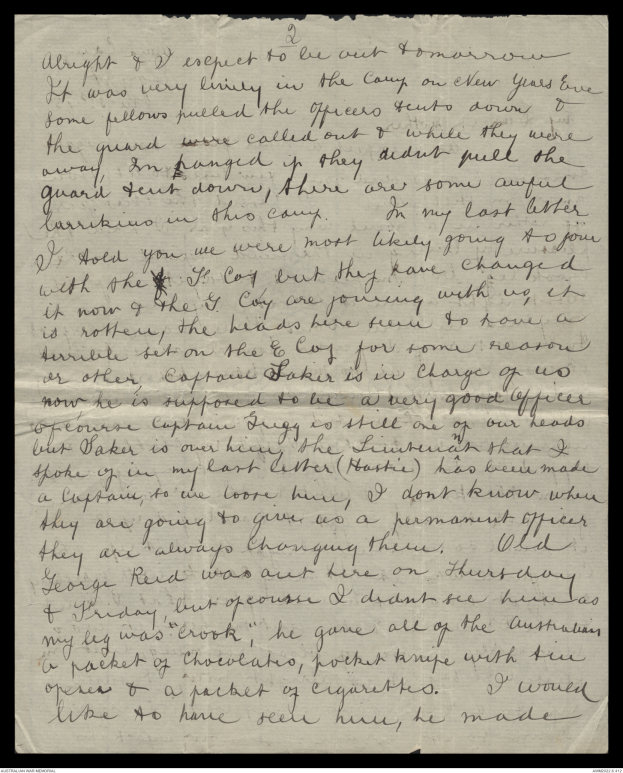 2
alright & I expect to be out tomorrow
It was very lively in the camp on New Years Eve
some fellows pulled the officers tents down &
the guard were called out & while they were
away, Im hanged if they didnt pull the
guard tent down, there are some awful
larrikins in this camp. In my last letter
I told you we were most likely going to join
with the F. Coy, but they have changed
it now & the G. Coy are joining with us, it
is rotten, the heads here seem to have a
terrible set on the E Coy for some reason
or other, Captain Saker is in charge of us
now, he is supposed to be a very good officer
ofcourse Captain Gregg is still one of our heads
but Saker is over him, the Lieutenant that I
spoke of in my last letter (Hastie) has been made
a Captain, so we loose him, I dont know when
they are going to give us a permanent officer
they are always changing them. Old
George Reid was out here on Thursday
& Friday, but ofcourse I didnt see him as
my leg was "crook", he gave all of the Australians
a packet of chocolates, pocket knife with tin
opener & a packet of cigarettes. I would
like to have seen him, he made
AUSTRALIAN WAR MEMORIAL